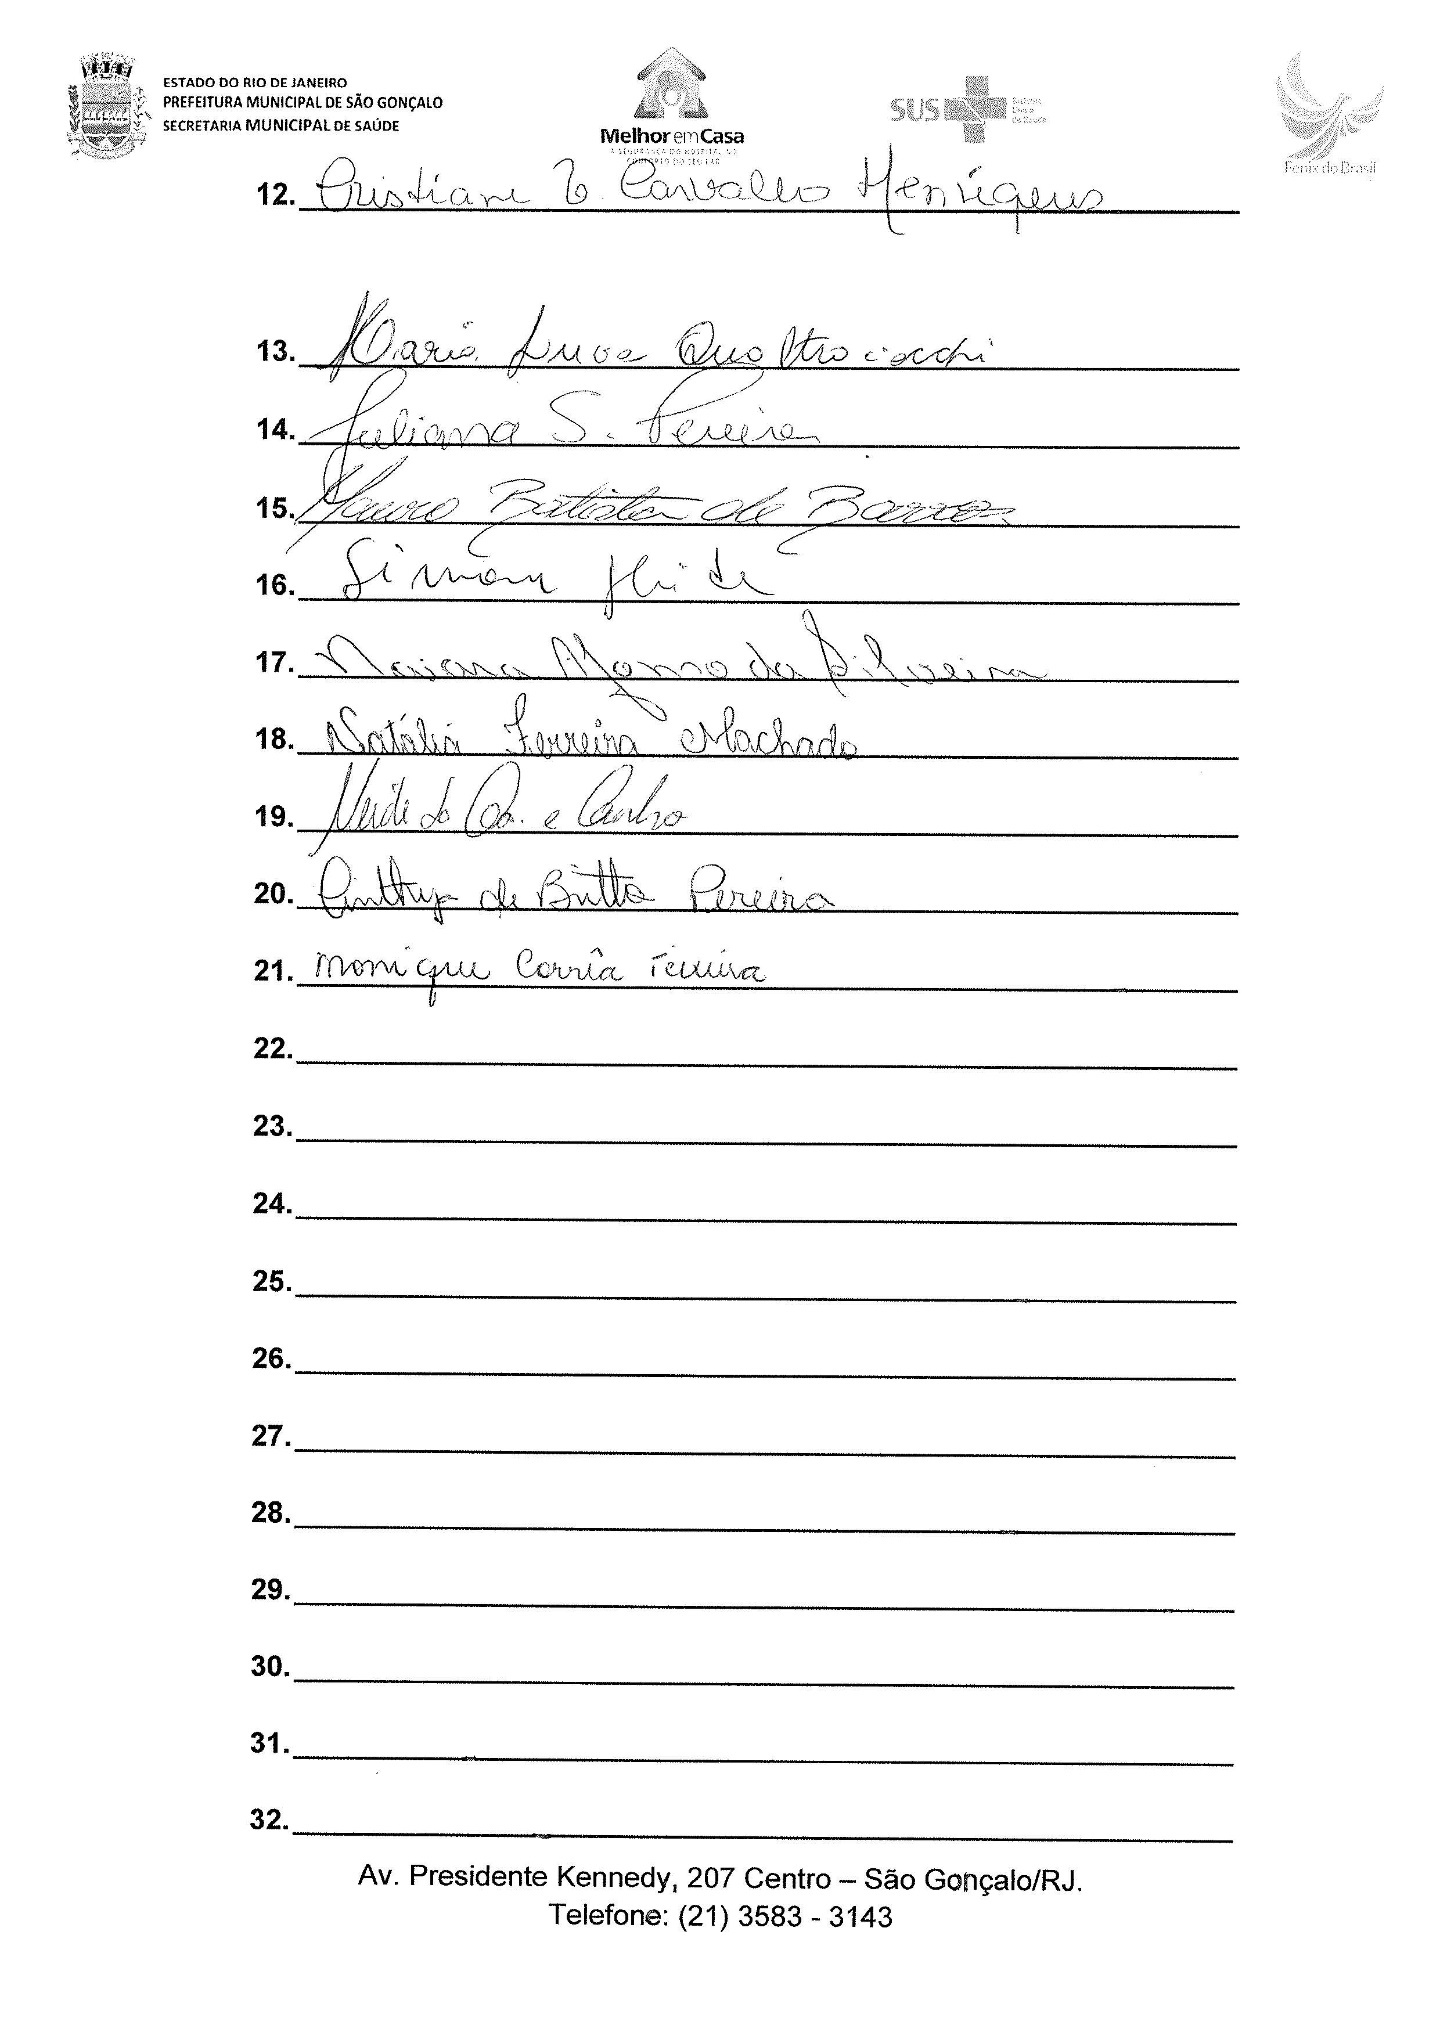 ESTADO DO RIO DE JANEIRO
PREFEITURA MUNICIPAL DE SÃO GONÇALO
SECRETARIA MUNICIPAL DE SAÚDE
Melhor em Casa
A SEGURANÇA DO HOSPITAL NO
CONFORTO DO SEU LAR
SUS
Fenix do Brasil
12. Cristiane T. Carvalho Henriques
13. Maria Luva Quattrociocchi
14. Juliana S. Pereira
15. Mauro Batista de Barros
16.
17. Naiara Afonso da Silveira
18. Natália Ferreira Machado
19. Neide e
20. Cinthya de Britto Pereira
21. Monique Corrêa Teixeira
22.
23.
24.
25.
26.
27.
28.
29.
30.
31.
32.
Av. Presidente Kennedy, 207 Centro – São Gonçalo/RJ.
Telefone: (21) 3583 - 3143